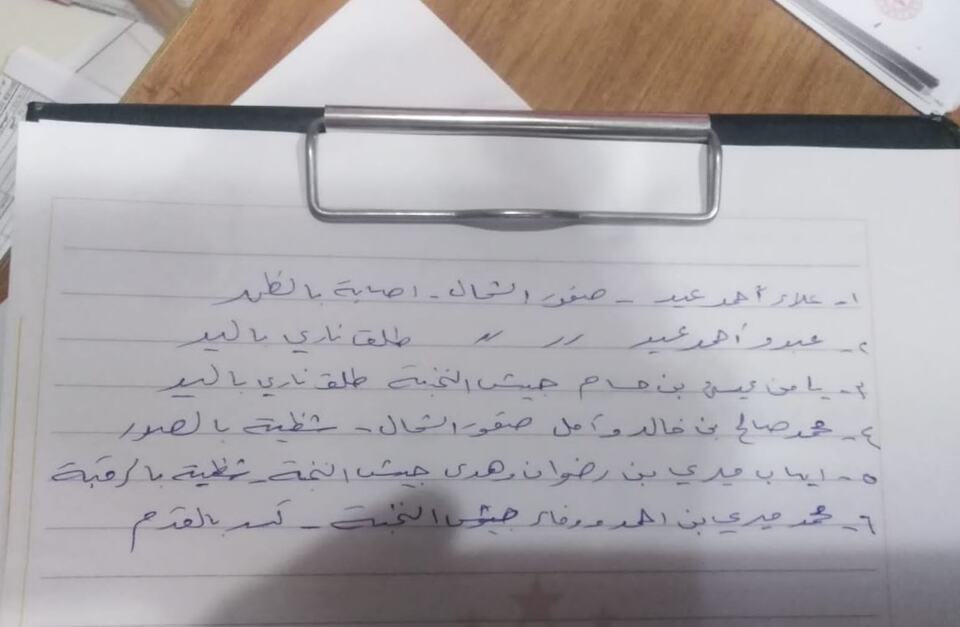 ١- علاء أحمد عيد - صقور الشمال - اصابة بالظهر
٢- عبدو أحمد عيد 〃 〃 طلق ناري باليد
٣- يامن عيسى بن حسام جيش النخبة طلق ناري باليد
٤- محمد صالح بن خالد وأمل صقور الشمال - شظية بالصدر
٥- ايهاب ميدي بن رضوان وهدى جيش النخبة - شظية بالرقبة
٦- محمد ميدي بن احمد ووفاء جيش النخبة - كسر بالقدم